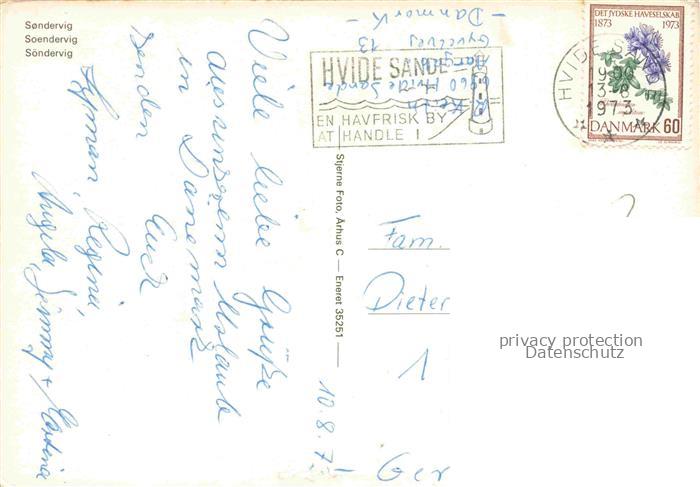 Søndervig
Soendervig
Söndervig
Viele liebe Grüße
aus unserem Urlaub
in Dänemark
senden Euch
Regina
Angela, Jimmy + Martina
10.8.7
Stjerne Foto, Århus C — Eneret 35251 —
- Danmark -
Gyvelvej 13
6960 Hvide Sande
HVIDE SANDE
EN HAVFRISK BY
AT HANDLE I
DET JYDSKE HAVESELSKAB
1873 1973
HVIDE S
19
13-8
1973
DANMARK 60
Fam.
Dieter
1
Ger
privacy protection
Datenschutz